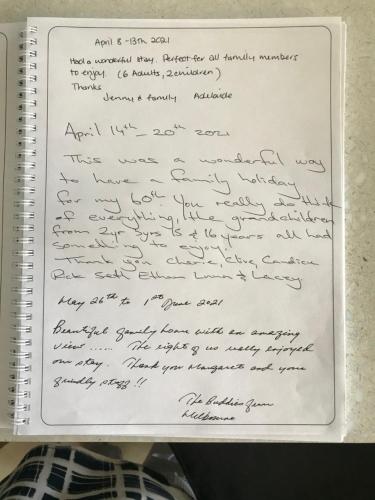 April 8-13th 2021
Had a wonderful stay. Perfect for all family members
to enjoy. (6 Adults, 2 children)
Thanks
Jenny & family Adelaide
April 14th - 20th 2021
This was a wonderful way
to have a family holiday
for my 60th. You really do think
of everything, the grandchildren
from 2yr 3yrs 15 & 16 years all had
something to enjoy!
Thank you Cherie, Clive, Candice
Rick Seth Ethan & Lacey
May 26th to 1st June 2021
Beautiful family home with an amazing
view...... The eight of us really enjoyed
our stay. Thank you Margaret and your
friendly staff!!
The Buddies from
Melbourne